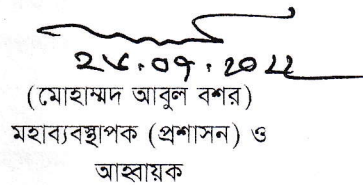 ২৮.০৭.২০২২
(মোহাম্মদ আবুল বশর)
মহাব্যবস্থাপক (প্রশাসন) ও
আহ্বায়ক